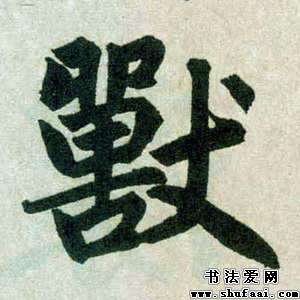 獸
书法爱网
www.shufaai.com